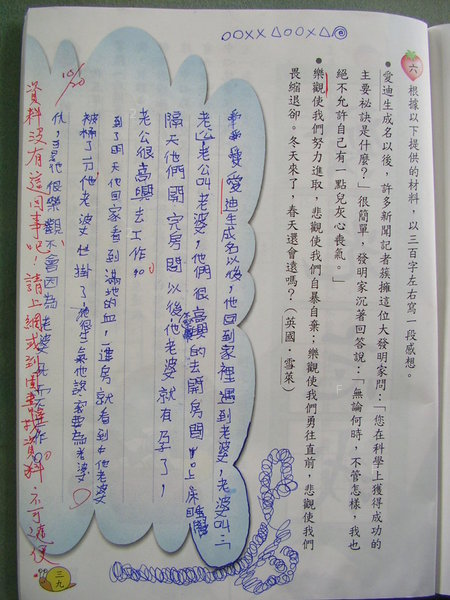 六 根據以下提供的材料，以三百字左右寫一段感想。
●愛迪生成名以後，許多新聞記者簇擁這位大發明家問：「您在科學上獲得成功的
主要祕訣是什麼？」很簡單，發明家沉著回答說：「無論何時，不管怎樣，我也
絕不允許自己有一點兒灰心喪氣。」
●樂觀使我們努力進取，悲觀使我們自暴自棄；樂觀使我們勇往直前，悲觀使我們
畏縮退卻。冬天來了，春天還會遠嗎？（英國．雪萊）
愛迪生成名以後，他回到家裡遇到老婆，老婆叫
老公，老公叫老婆，他們很高興的去開房間 上床睡覺
隔天他們開完房間以後他老婆就有孕了，
老公很高興去工作。
到了明天他回家看到滿地的血，進房就看到他老婆
被桶了一刀他老婆也掛了，他很生氣他說 要為老婆
仇， 他很樂觀不會因為老婆死 不工作。
資料沒有這回事吧！請上網或到圖書 找資料，不可隨便。
三九